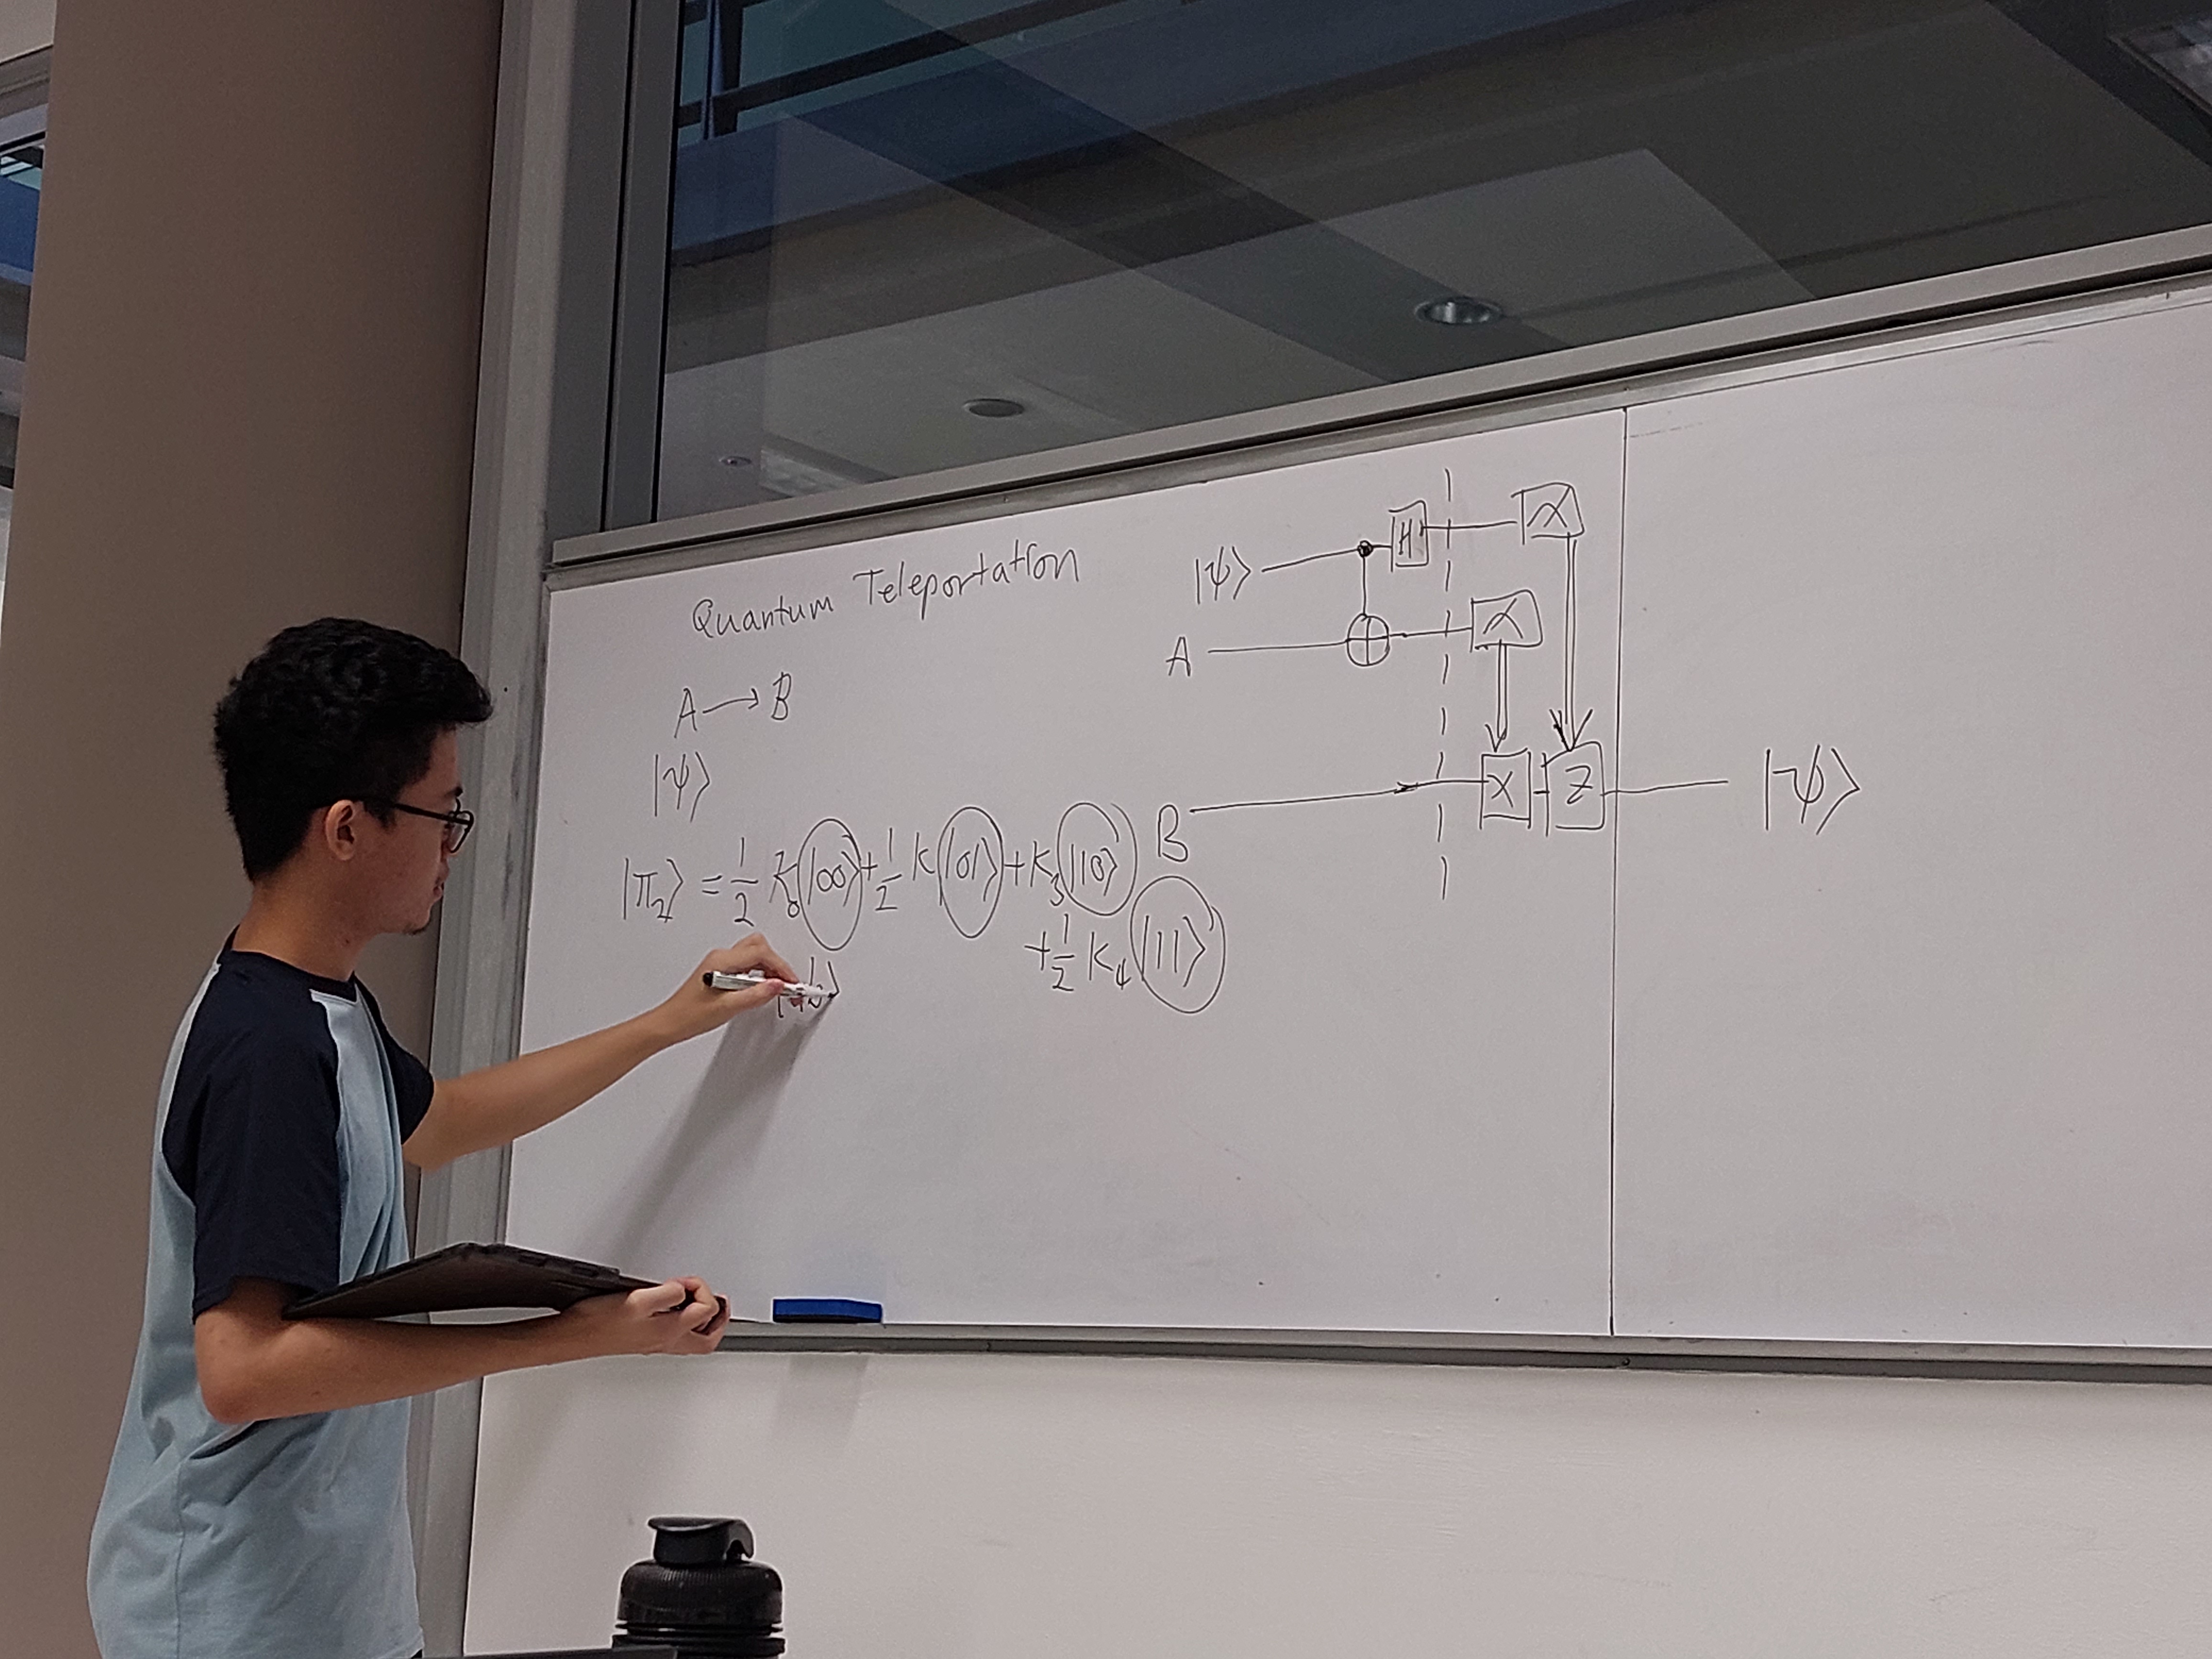 Quantum Teleportation
A → B
|ψ⟩
|π₂⟩ = 1/2 K₀|00⟩ + 1/2 K|01⟩ + K₃|10⟩
+ 1/2 K₄|11⟩
|ψ⟩
H
A
B
X
Z
|ψ⟩